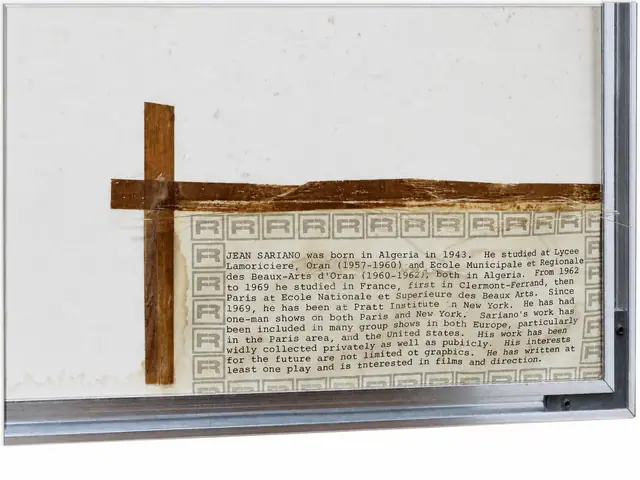 JEAN SARIANO was born in Algeria in 1943. He studied at Lycee
Lamoriciere, Oran (1957-1960) and Ecole Municipale et Regionale
des Beaux-Arts d'Oran (1960-1962), both in Algeria. From 1962
to 1969 he studied in France, first in Clermont-Ferrand, then
Paris at Ecole Nationale et Superieure des Beaux Arts. Since
1969, he has been at Pratt Institute in New York. He has had
one-man shows on both Paris and New York. Sariano's work has
been included in many group shows in both Europe, particularly
in the Paris area, and the United States. His work has been
widly collected privately as well as publicly. His interests
for the future are not limited ot graphics. He has written at
least one play and is interested in films and direction.